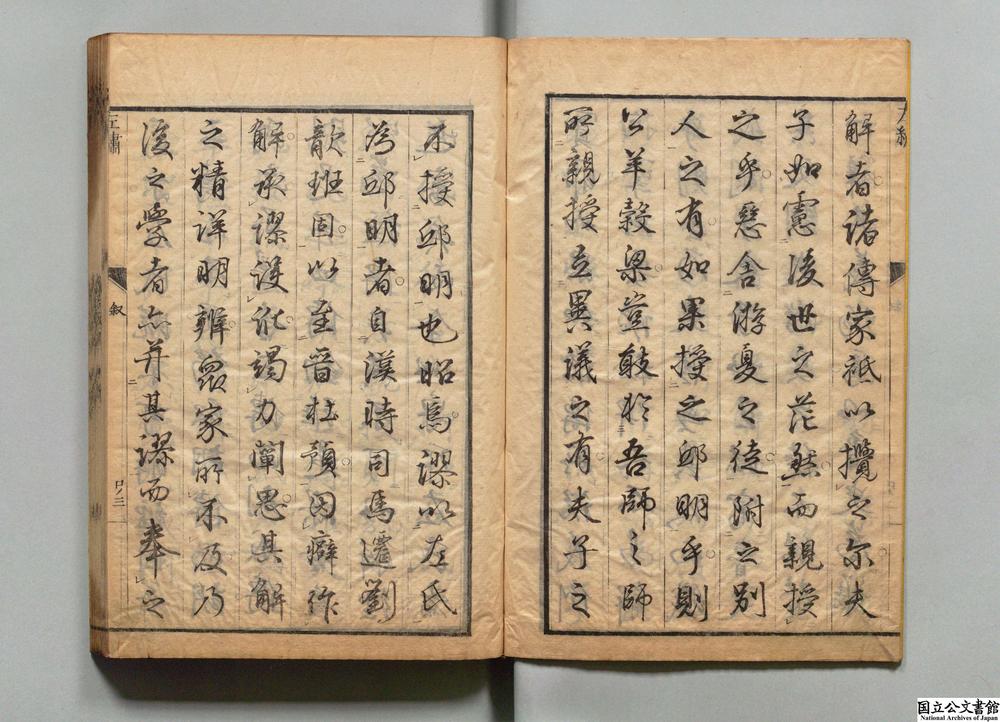 解者諸傳家祗以攬之尔夫
子如慮後世之茫然而親授
之乎慈舍游夏之徒附之別
人之有如果授之邱明乎則
公羊穀梁豈敢於吾師之師
所親授立異議之有夫子之
不授邱明也昭焉謬以左氏
為邱明者自漢時司馬遷劉
歆班固以至晉杜預因癖作
解承謬誤能竭力闡思其解
之精詳明辨眾家所不及乃
後之學者亦并其謬而奉之
叙
叙
国立公文書館
National Archives of Japan